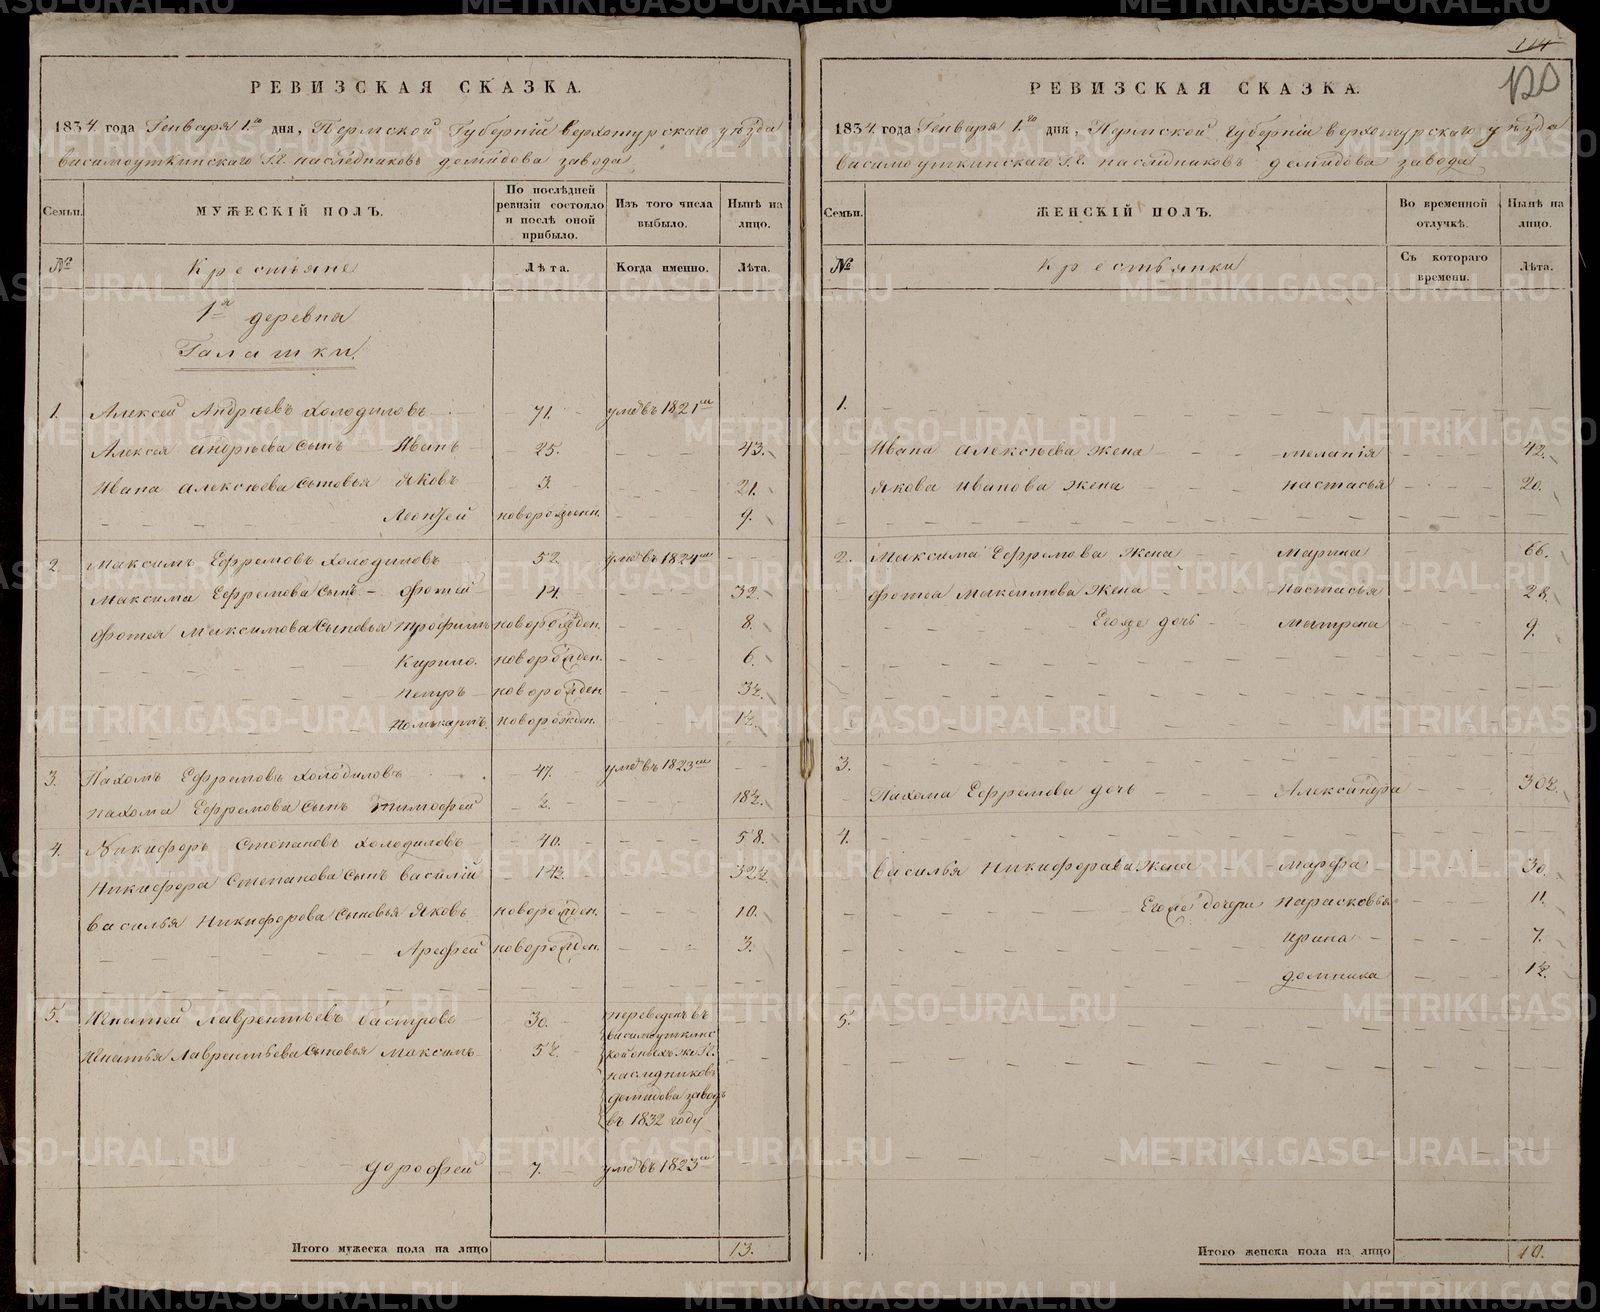 РЕВИЗСКАЯ СКАЗКА.
1834. года Генваря 1.го дня, Пермской Губернiи верхотурскаго уѣзда
висимоуткинскаго Г.Г. наслѣдниковъ демидова завода
Семьи.
МУЖЕСКIЙ ПОЛЪ.
По послѣдней ревизiи состояло и послѣ оной прибыло.
Изъ того числа выбыло.
Нынѣ на лицо.
№
Крестьяне
Лѣта.
Когда именно.
Лѣта.
1я деревня
Галашки.
1. Алексей Андрѣевъ Холодиловъ 71. умѣ въ 1821м
Алексея андрѣева сынъ Иванъ 25. 43.
Ивана алексѣева сыновья Яковъ 3. 21.
Леонтей новорожденн. 9.
2. Максимъ Ефремовъ Холодиловъ 52 умѣ въ 1824м
Максима Ефремова сынъ фотей 14. 32.
фотея Максимова сыновья трофимъ новорожден. 8.
Кирило. новорожден. 6.
Петръ новорожден 3½.
Поликарпъ новорожден. 1½.
3. Пахомъ Ефремовъ Холодиловъ 47. умѣ въ 1823м
пахома Ефремова сынъ тимофей ½. 18½.
4. Никифоръ Степановъ холодиловъ 40. 58.
Никифора Степанова сынъ василiй 14½. 32½.
василья Никифорова сыновья Яковъ новорожден. 10.
Арефей новорожден. 3.
5. Игнатей Лаврентьевъ 30. переведенъ въ
Игнатья Лаврентьева сыновья максимъ 5½. висимоуткинс
кой Г.Г.
наслѣдниковъ
демидова заводъ
въ 1832 году
дорофей 7. умѣ въ 1823м
Итого мужеска пола на лицо 13.
114
120
РЕВИЗСКАЯ СКАЗКА.
1834. года Генваря 1.го дня, Пермской губернiи верхотурскаго уѣзда
висимоуткинскаго Г.Г. наслѣдниковъ демидова завода
Семьи.
ЖЕНСКIЙ ПОЛЪ.
Во временной отлучкѣ.
Нынѣ на лицо.
№
Крестьянки
Съ котораго времени.
Лѣта.
1.
Ивана алексѣева жена меланiя 42.
Якова иванова жена настасья 20.
2. Максима Ефремова жена Марина 66.
фотеа Максимова жена настасья 28.
Егоже дочь Матрена 9.
3.
Пахома Ефремова дочь Александра 30½.
4.
василья Никифорава жена Марфа 30.
Егоже дочери парасковья 11.
ирина 7.
домника 1½.
5.
Итого женска пола на лицо 10.
METRIKI.GASO-URAL.RU